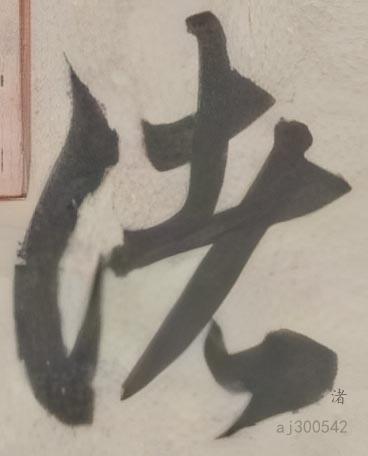 渚
渚
aj300542